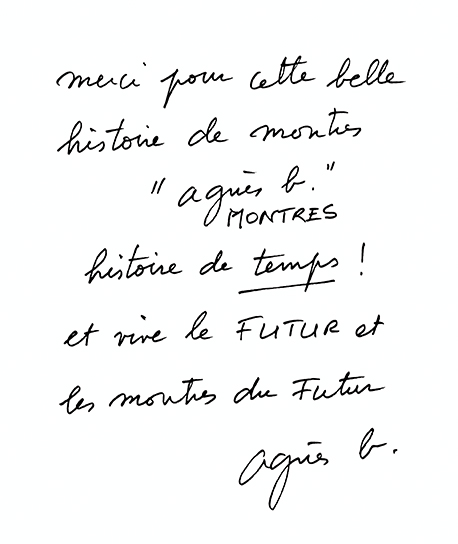 merci pour cette belle
histoire de montres
"agnès b."
MONTRES
histoire de temps !
et vive le FUTUR et
les montres du Futur
agnès b.